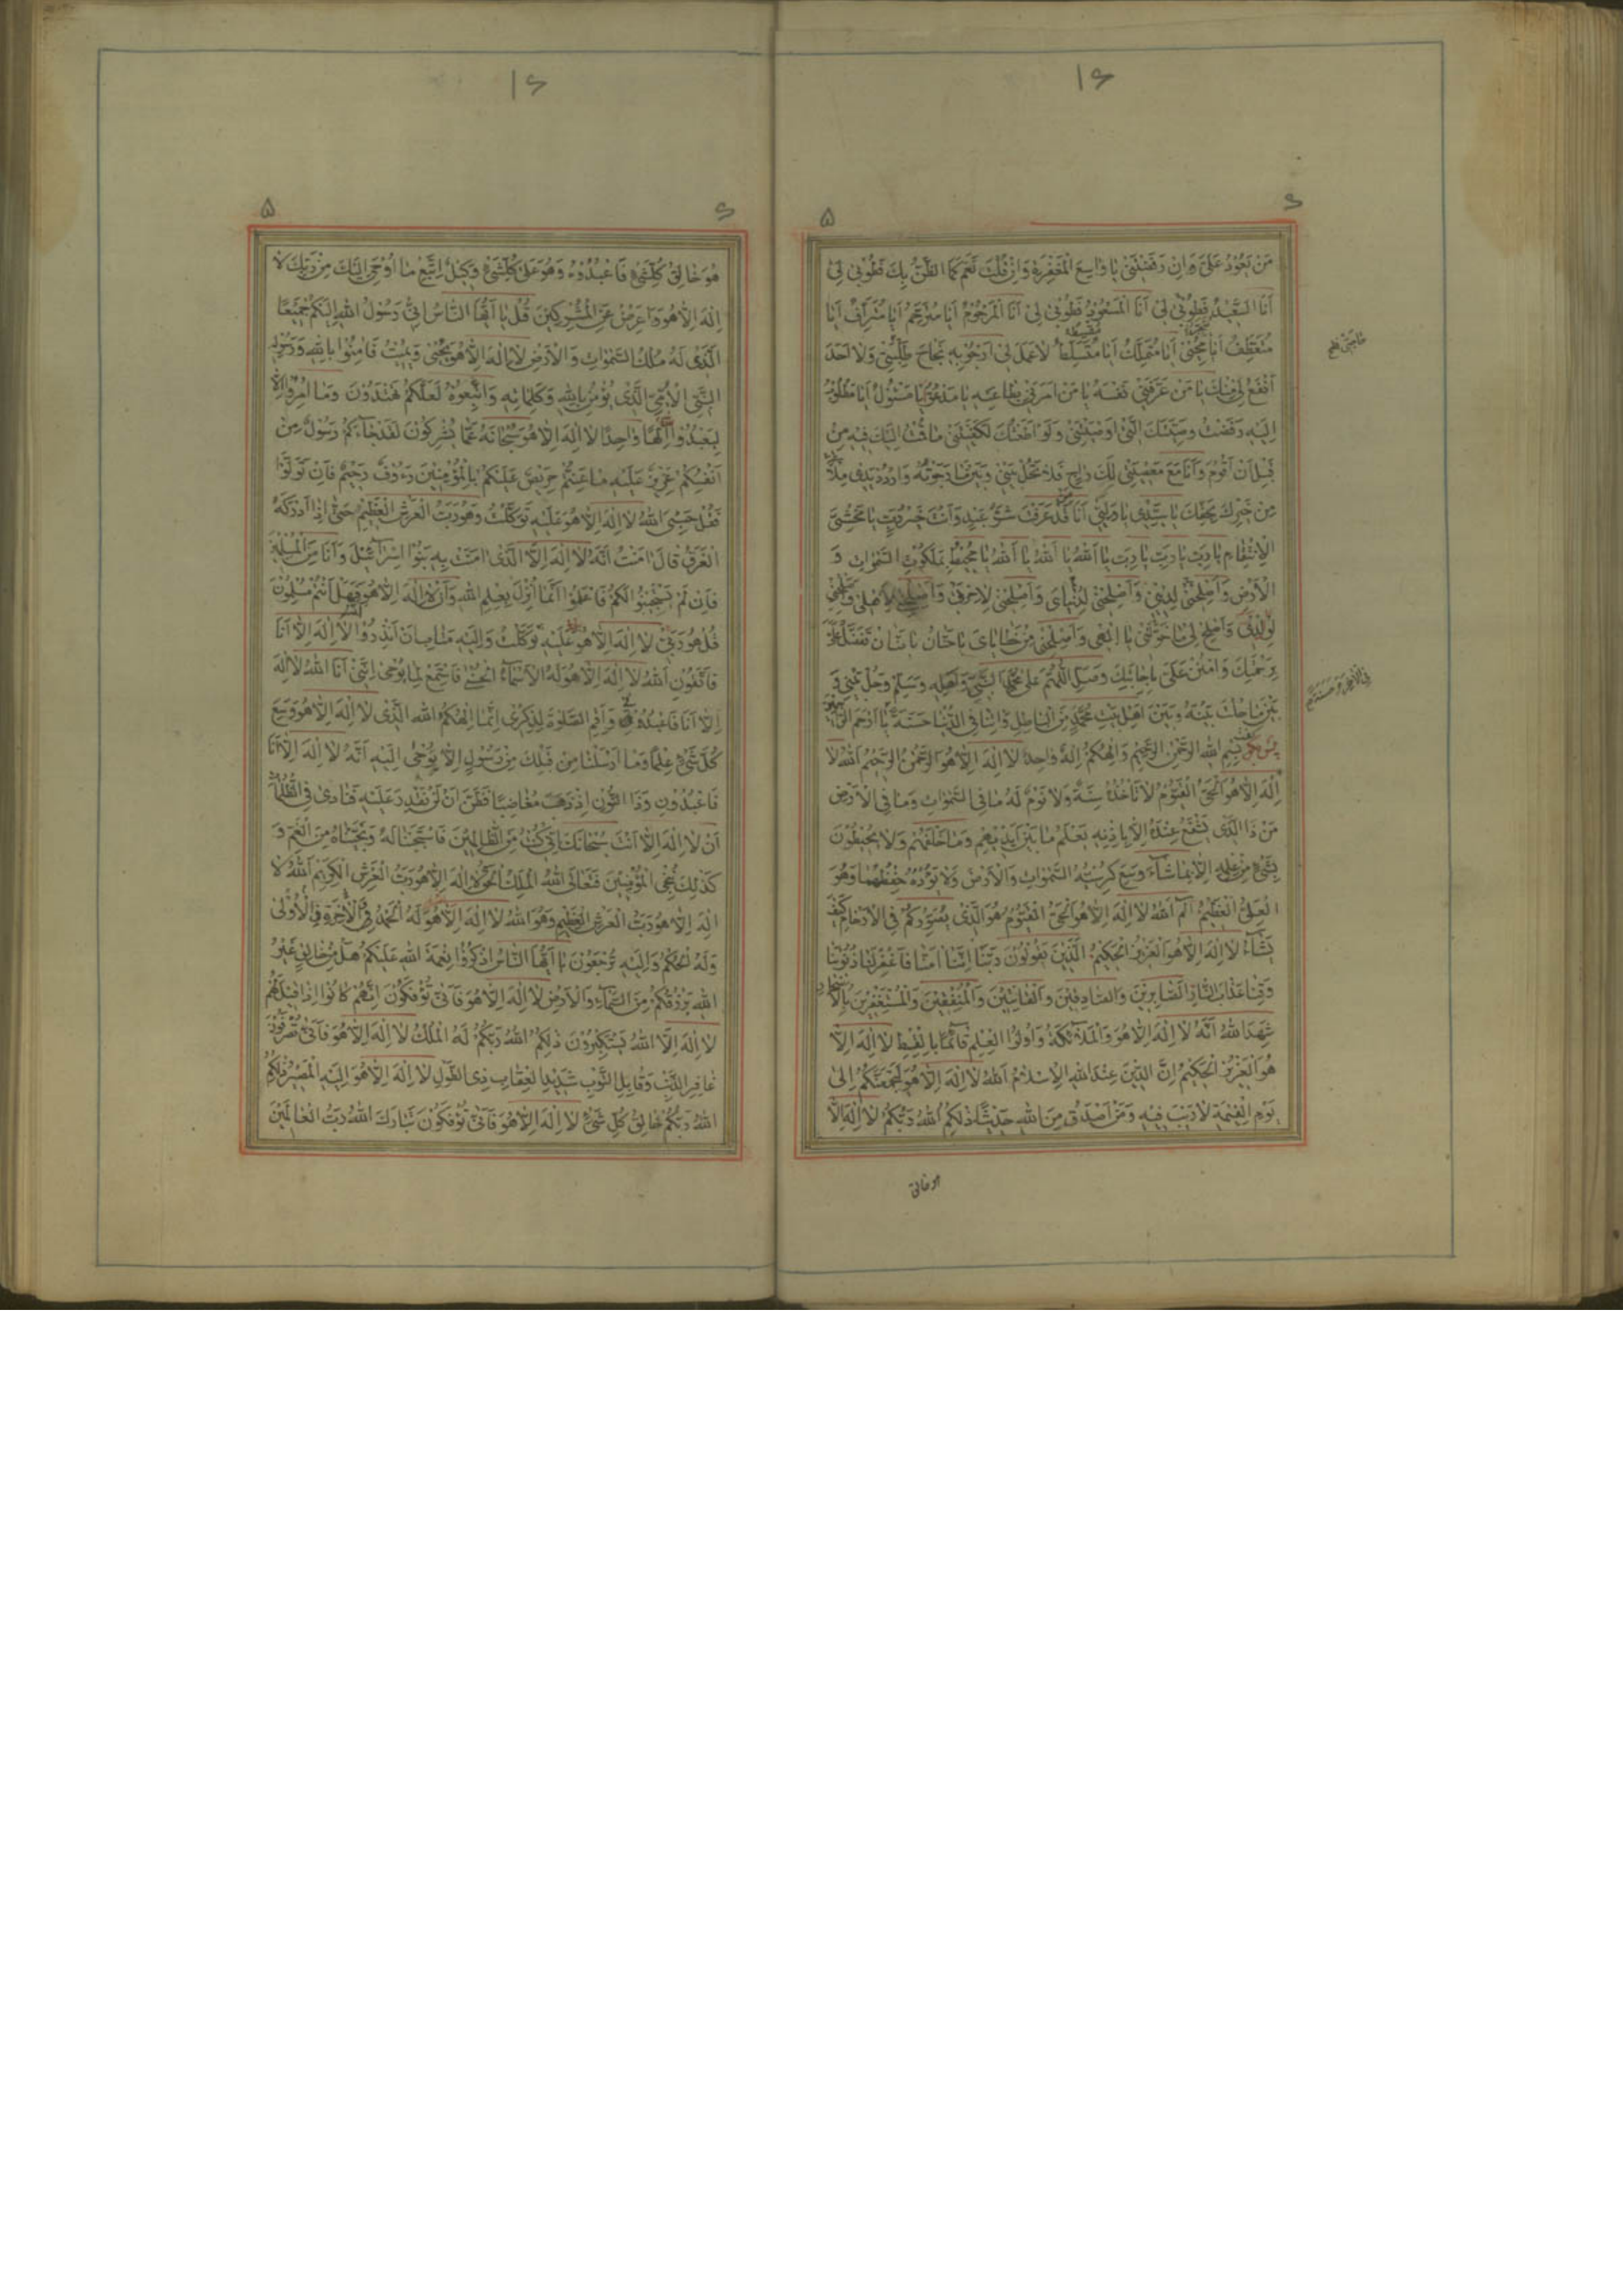 مَنْ يَعُودُ عَلَيَّ وَاِنْ رَفَضْتَنى يا واسِعَ الْمَغْفِرَةِ وَاِنْ قُلْتَ نَعَمْ كَمَا الظَّنُّ بِكَ فَطُوبى لى
اَنَا السَّعيدُ فَطُوبى لى اَنَا الْمَسْعُودُ فَطُوبى لى اَنَا الْمَرْحُومُ اَيا مُتَرَحِّمُ اَيا مُتَرَأِّفُ اَيا
مُتَعَطِّفُ اَيا مُتَمَلِّكُ اَيا مُتَسَلِّطُ لا عَمَلَ لى اَرْجُو بِهِ نَجاحَ طَلِبَتى وَلا اَحَدَ
اَنْفَعُ لى مِنْكَ يا مَنْ عَرَّفَنى نَفْسَهُ يا مَنْ اَمَرَنى بِطاعَتِهِ يا مَدْعُوُّ يا مَسْئُولُ اَيا مَطْلُوبُ
اِلَيْهِ رَفَضْتُ وَصِيَّتَكَ الَّتى اَوْصَيْتَنى وَلَوْ اَطَعْتُكَ لَكَفَيْتَنى ما قُمْتُ اِلَيْكَ فيهِ مِنْ
قَبْلِ اَنْ اَقُومَ وَاَنَا مَعَ مَعْصِيَتى لَكَ راجٍ فَلا تَحُلْ بَيْنى وَبَيْنَ ما رَجَوْتُهُ وَارْدُدْ يَدى مِلْأً
مِنْ خَيْرِكَ بِحَقِّكَ يا سَيِّدى يا وَلِيّى اَنَا مَنْ قَدْ عَرَفْتَ شَرُّ عَبْدٍ وَاَنْتَ خَيْرُ رَبٍّ يا مَخْشِيَّ
الْاِنْتِقامِ يا رَبِّ يا رَبِّ يا رَبِّ يا اَللهُ يا اَللهُ يا اَللهُ يا مُحيطُ بِمَلَكُوتِ السَّمواتِ وَ
الْاَرْضِ وَاَصْلِحْنى لِدينى وَاَصْلِحْنى لِدُنْياىَ وَاَصْلِحْنى لِاخِرَتى وَاَصْلِحْنى لِاَهْلى وَاَصْلِحْنى
لِوُلْدى وَاَصْلِحْ لى ما خَوَّلْتَنى يا اِلهى وَاَصْلِحْنى مِنْ خَطاياىَ يا حَنّانُ يا مَنّانُ تَفَضَّلْ عَلَيَّ
بِرَحْمَتِكَ وَامْنُنْ عَلَيَّ بِاِجابَتِكَ وَصَلِّ اللّهُمَّ عَلى مُحَمَّدٍ النَّبِيِّ وَاَهْلِهِ وَسَلِّمْ وَحُلْ بَيْنى وَ
بِسْمِ اللهِ الرَّحْمنِ الرَّحيمِ وَاِلهُكُمْ اِلهٌ واحِدٌ لا اِلهَ اِلاّ هُوَ الرَّحْمنُ الرَّحيمُ اَللهُ لا
اِلهَ اِلاّ هُوَ الْحَيُّ الْقَيُّومُ لا تَأْخُذُهُ سِنَةٌ وَلا نَوْمٌ لَهُ ما فِى السَّمواتِ وَما فِى الْاَرْضِ
مَنْ ذَا الَّذى يَشْفَعُ عِنْدَهُ اِلاّ بِاِذْنِهِ يَعْلَمُ ما بَيْنَ اَيْديهِمْ وَما خَلْفَهُمْ وَلا يُحيطُونَ
بِشَىْءٍ مِنْ عِلْمِهِ اِلاّ بِما شاءَ وَسِعَ كُرْسِيُّهُ السَّمواتِ وَالْاَرْضَ وَلا يَؤُدُهُ حِفْظُهُما وَهُوَ
الْعَلِىُّ الْعَظيمُ الم اَللهُ لا اِلهَ اِلاّ هُوَ الْحَيُّ الْقَيُّومُ هُوَ الَّذى يُصَوِّرُكُمْ فِى الْاَرْحامِ كَيْفَ
يَشاءُ لا اِلهَ اِلاّ هُوَ الْعَزيزُ الْحَكيمُ الَّذينَ يَقُولُونَ رَبَّنا اِنَّنا امَنّا فَاغْفِرْ لَنا ذُنُوبَنا
وَقِنا عَذابَ النّارِ اَلصّابِرينَ وَالصّادِقينَ وَالْقانِتينَ وَالْمُنْفِقينَ وَالْمُسْتَغْفِرينَ بِالْاَسْحارِ
شَهِدَ اللهُ اَنَّهُ لا اِلهَ اِلاّ هُوَ وَالْمَلائِكَةُ وَاُولُوا الْعِلْمِ قائِماً بِالْقِسْطِ لا اِلهَ اِلاّ
هُوَ الْعَزيزُ الْحَكيمُ اِنَّ الدّينَ عِنْدَ اللهِ الْاِسْلامُ اَللهُ لا اِلهَ اِلاّ هُوَ لَيَجْمَعَنَّكُمْ اِلى
يَوْمِ الْقِيمَةِ لا رَيْبَ فيهِ وَمَنْ اَصْدَقُ مِنَ اللهِ حَديثاً ذلِكُمُ اللهُ رَبُّكُمْ لا اِلهَ اِلاّ
هو خالق
هُوَ خالِقُ كُلِّشَىْءٍ فَاعْبُدُوهُ وَهُوَ عَلى كُلِّشَىْءٍ وَكيلٌ اِتَّبِعْ ما اُوحِىَ اِلَيْكَ مِنْ رَبِّكَ لا
اِلهَ اِلاّ هُوَ وَاَعْرِضْ عَنِ الْمُشْرِكينَ قُلْ يا اَيُّهَا النّاسُ اِنّى رَسُولُ اللهِ اِلَيْكُمْ جَميعاً
الَّذى لَهُ مُلْكُ السَّمواتِ وَالْاَرْضِ لا اِلهَ اِلاّ هُوَ يُحْيى وَيُميتُ فَامِنُوا بِاللهِ وَرَسُولِهِ
النَّبِىِّ الْاُمِّىِّ الَّذى يُؤْمِنُ بِاللهِ وَكَلِماتِهِ وَاتَّبِعُوهُ لَعَلَّكُمْ تَهْتَدُونَ وَما اُمِرُوا اِلاّ
لِيَعْبُدُوا اِلهاً واحِداً لا اِلهَ اِلاّ هُوَ سُبْحانَهُ عَمّا يُشْرِكُونَ لَقَدْ جاءَكُمْ رَسُولٌ مِنْ
اَنْفُسِكُمْ عَزيزٌ عَلَيْهِ ما عَنِتُّمْ حَريصٌ عَلَيْكُمْ بِالْمُؤْمِنينَ رَءُوفٌ رَحيمٌ فَاِنْ تَوَلَّوْا
فَقُلْ حَسْبِىَ اللهُ لا اِلهَ اِلاّ هُوَ عَلَيْهِ تَوَكَّلْتُ وَهُوَ رَبُّ الْعَرْشِ الْعَظيمِ حَتّى اِذا اَدْرَكَهُ
الْغَرَقُ قالَ امَنْتُ اَنَّهُ لا اِلهَ اِلاَّ الَّذى امَنَتْ بِهِ بَنُوا اِسْرائيلَ وَاَنَا مِنَ الْمُسْلِمينَ
فَاِنْ لَمْ يَسْتَجيبُوا لَكُمْ فَاعْلَمُوا اَنَّما اُنْزِلَ بِعِلْمِ اللهِ وَاَنْ لا اِلهَ اِلاّ هُوَ فَهَلْ اَنْتُمْ مُسْلِمُونَ
قُلْ هُوَ رَبّى لا اِلهَ اِلاّ هُوَ عَلَيْهِ تَوَكَّلْتُ وَاِلَيْهِ مَتابِ اَنْ اَنْذِرُوا اَنَّهُ لا اِلهَ اِلاّ اَنَا
فَاتَّقُونِ اَللهُ لا اِلهَ اِلاّ هُوَ لَهُ الْاَسْماءُ الْحُسْنى فَاسْتَمِعْ لِما يُوحى اِنَّنى اَنَا اللهُ لا اِلهَ
اِلاّ اَنَا فَاعْبُدْنى وَاَقِمِ الصَّلوةَ لِذِكْرى اِنَّما اِلهُكُمُ اللهُ الَّذى لا اِلهَ اِلاّ هُوَ وَسِعَ
كُلَّ شَىْءٍ عِلْماً وَما اَرْسَلْنا مِنْ قَبْلِكَ مِنْ رَسُولٍ اِلاّ يُوحى اِلَيْهِ اَنَّهُ لا اِلهَ اِلاّ اَنَا
فَاعْبُدُونِ وَذَا النُّونِ اِذْ ذَهَبَ مُغاضِباً فَظَنَّ اَنْ لَنْ نَقْدِرَ عَلَيْهِ فَنادى فِى الظُّلُماتِ
اَنْ لا اِلهَ اِلاّ اَنْتَ سُبْحانَكَ اِنّى كُنْتُ مِنَ الظّالِمينَ فَاسْتَجَبْنا لَهُ وَنَجَّيْناهُ مِنَ الْغَمِّ وَ
كَذلِكَ نُنْجِى الْمُؤْمِنينَ فَتَعالَى اللهُ الْمَلِكُ الْحَقُّ لا اِلهَ اِلاّ هُوَ رَبُّ الْعَرْشِ الْكَريمِ اَللهُ لا
اِلهَ اِلاّ هُوَ رَبُّ الْعَرْشِ الْعَظيمِ وَهُوَ اللهُ لا اِلهَ اِلاّ هُوَ لَهُ الْحَمْدُ فِى الْاُولى وَالْاخِرَةِ
وَلَهُ الْحُكْمُ وَاِلَيْهِ تُرْجَعُونَ يا اَيُّهَا النّاسُ اذْكُرُوا نِعْمَةَ اللهِ عَلَيْكُمْ هَلْ مِنْ خالِقٍ غَيْرُ
اللهِ يَرْزُقُكُمْ مِنَ السَّماءِ وَالْاَرْضِ لا اِلهَ اِلاّ هُوَ فَاَنّى تُؤْفَكُونَ اِنَّهُمْ كانُوا اِذا قيلَ لَهُمْ
لا اِلهَ اِلاَّ اللهُ يَسْتَكْبِرُونَ ذلِكُمُ اللهُ رَبُّكُمْ لَهُ الْمُلْكُ لا اِلهَ اِلاّ هُوَ فَاَنّى تُصْرَفُونَ
غافِرِ الذَّنْبِ وَقابِلِ التَّوْبِ شَديدِ الْعِقابِ ذِى الطَّوْلِ لا اِلهَ اِلاّ هُوَ اِلَيْهِ الْمَصيرُ ذلِكُمُ
اللهُ رَبُّكُمْ خالِقُ كُلِّ شَىْءٍ لا اِلهَ اِلاّ هُوَ فَاَنّى تُؤْفَكُونَ تَبارَكَ اللهُ رَبُّ الْعالَمينَ